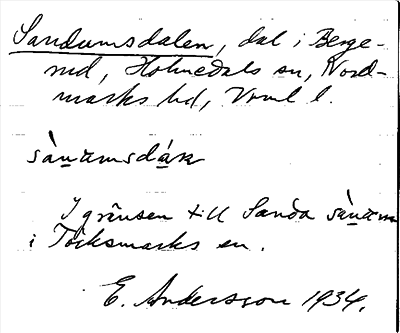 Sandumsdalen, dal i Berge-
rud, Holmedals sn, Nord-
marks hd, Vrml l.
sàn̲ɯmsdáḷa
I gränsen till Sanda sàn̲ɯm
i Töcksmarks sn.
E. Andersson 1934.